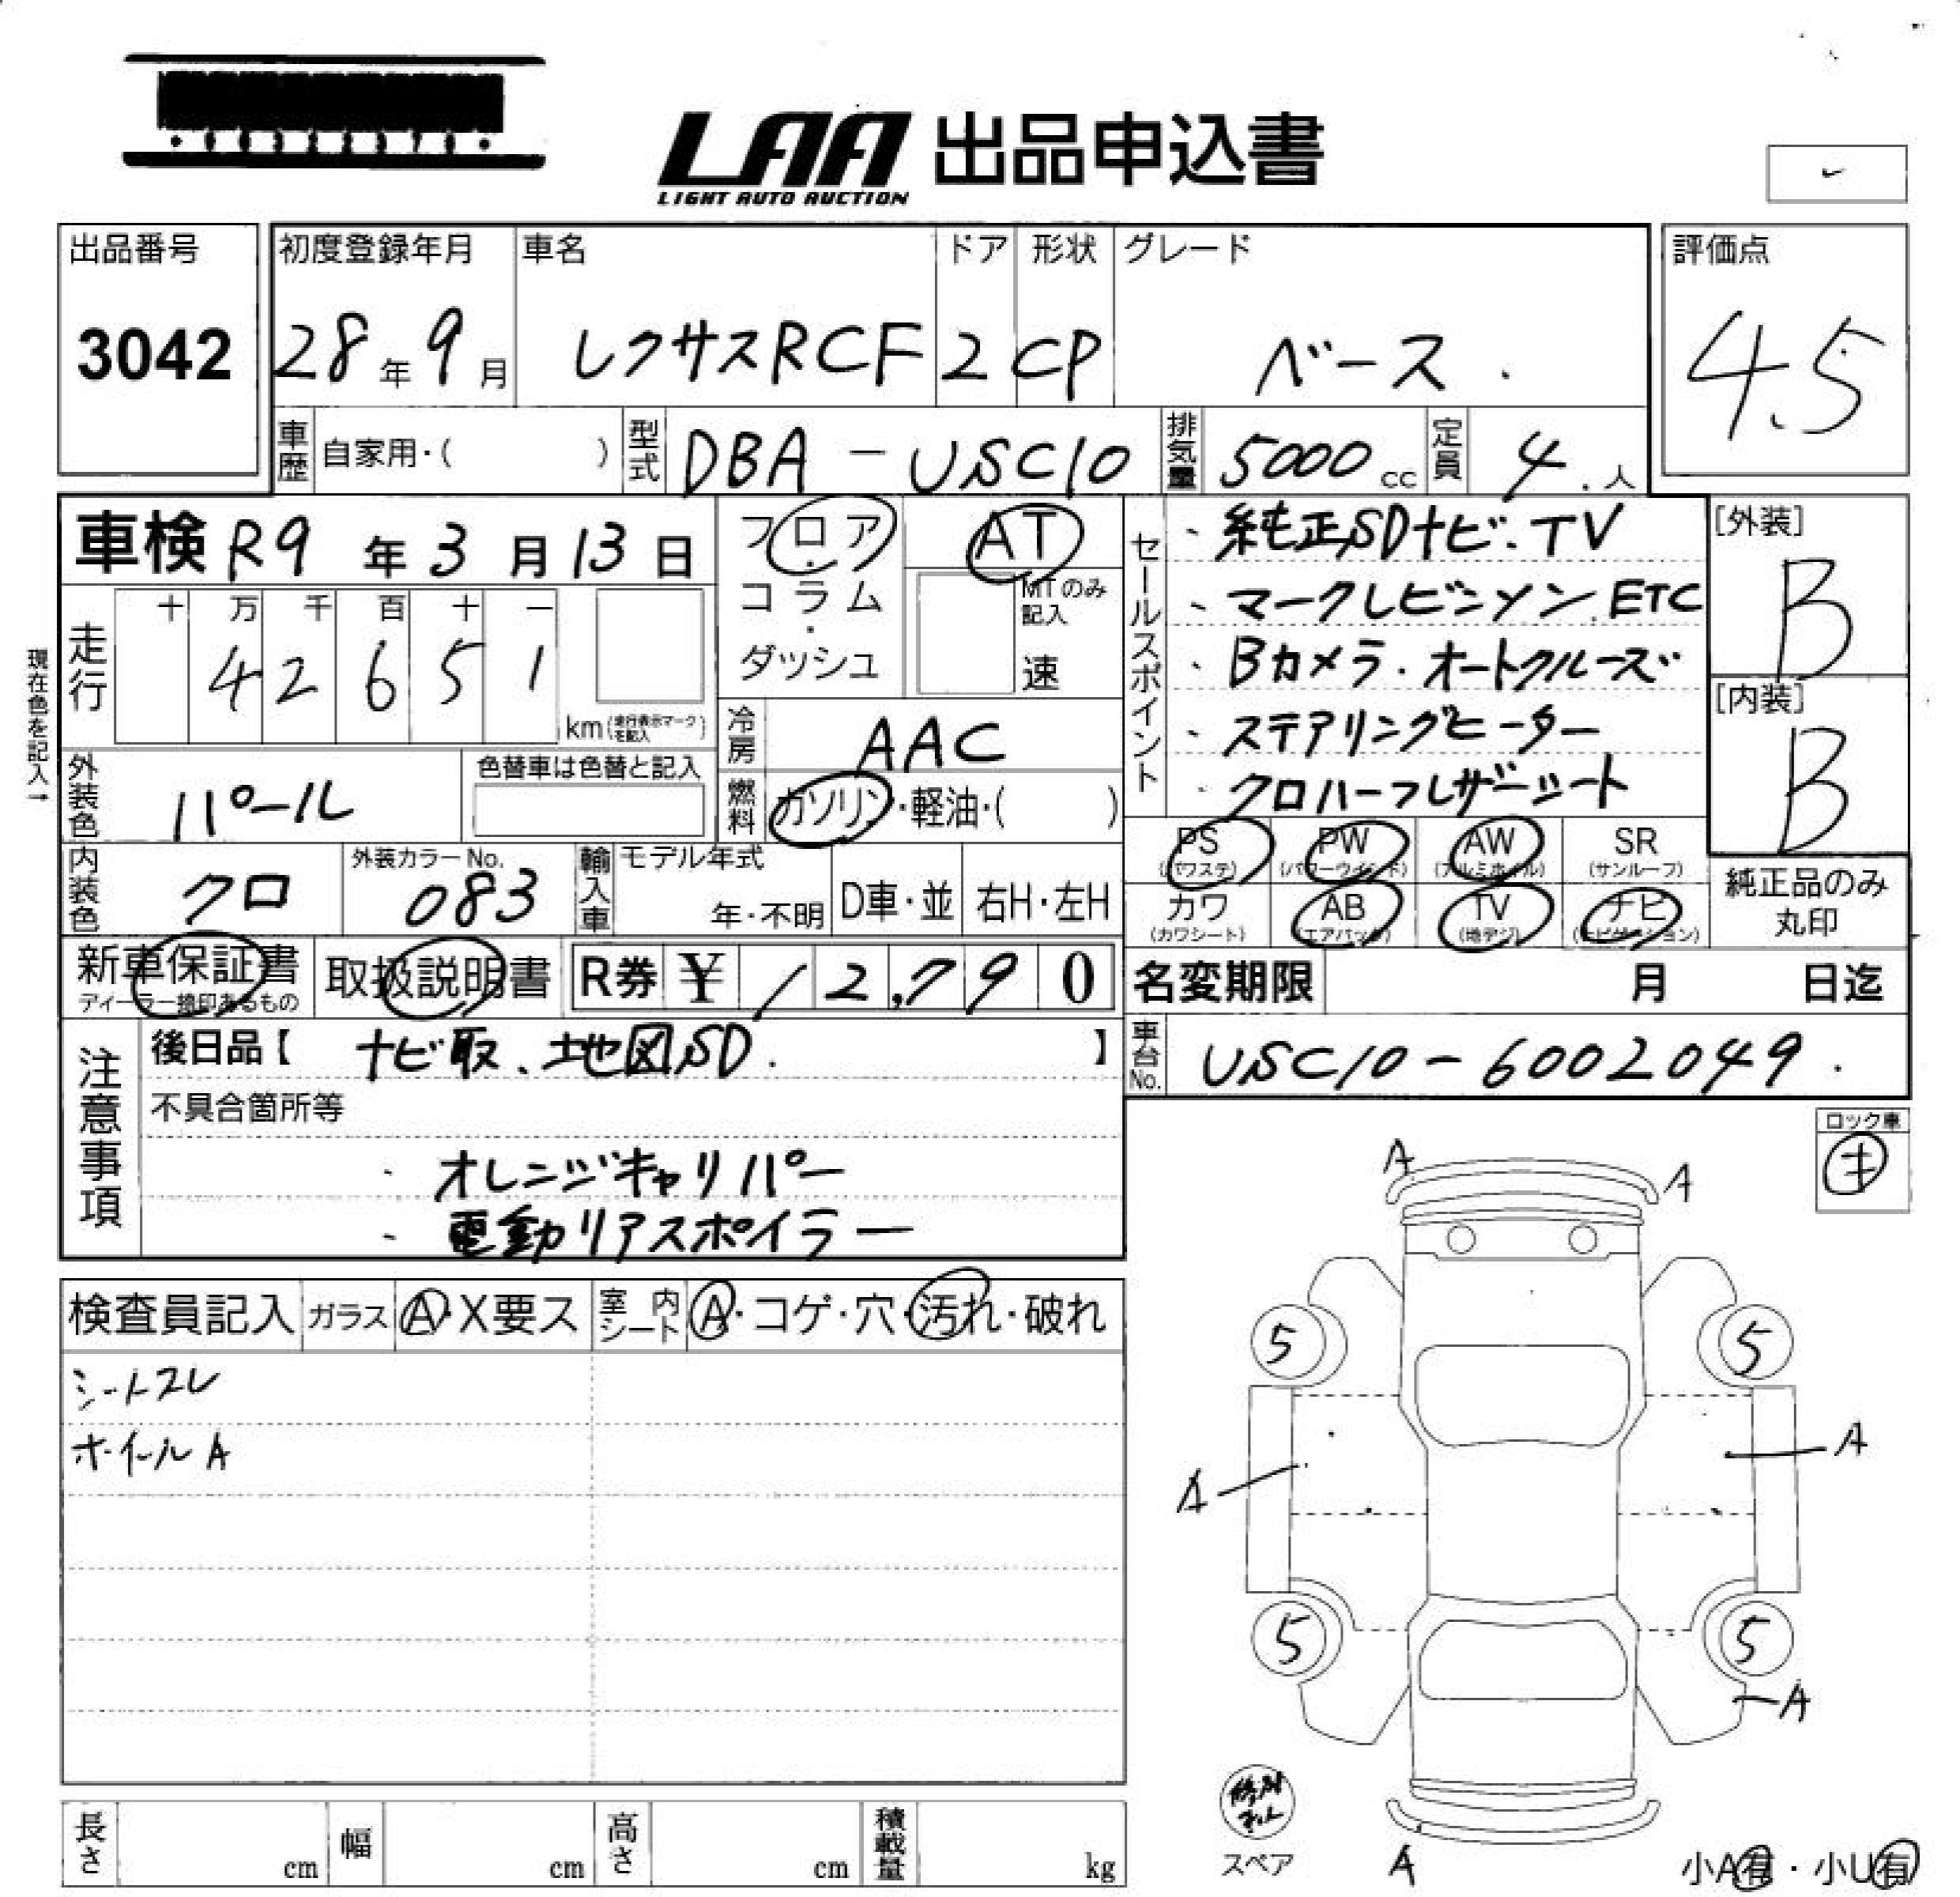 LAA 出品申込書
LIGHT AUTO AUCTION
出品番号
3042
初度登録年月
28年9月
車名
レクサスRCF
ドア
2
形状
CP
グレード
ベース
評価点
4.5
車歴 自家用・( )
型式 DBA-USC10
排気量 5000cc
定員 4人
車検 R9年3月13日
フロア
コラム
・
ダッシュ
AT
MTのみ記入
速
セールスポイント
・純正SDナビ・TV
・マークレビンソン.ETC
・Bカメラ・オートクルーズ
・ステアリングヒーター
・クロハーフレザーシート
[外装]
B
[内装]
B
現在色を記入→
走行
十 万 千 百 十 一
4 2 6 5 1
km(走行表示マークを記入)
冷房 AAC
燃料 ガソリン・軽油・( )
外装色 パール
色替車は色替と記入
内装色 クロ
外装カラーNo. 083
輸入車
モデル年式
年・不明
D車・並
右H・左H
PS (パワステ)
PW (パワーウインド)
AW (アルミホイル)
SR (サンルーフ)
カワ (カワシート)
AB (エアバック)
TV (地デジ)
ナビ (ナビゲーション)
純正品のみ
丸印
新車保証書
ディーラー捺印あるもの
取扱説明書
R券 ¥ 12,790
名変期限 月 日迄
車台No. USC10-6002049
注意事項
後日品【 ナビ取、地図SD. 】
不具合箇所等
・オレンジキャリパー
・電動リアスポイラー
ロック車
検査員記入
ガラス A・X要ス
室内シート A・コゲ・穴・汚れ・破れ
シートスレ
ホイールA
A
A
5
5
A
A
5
5
A
A
スペア
小A有・小U有
長さ cm
幅 cm
高さ cm
積載量 kg